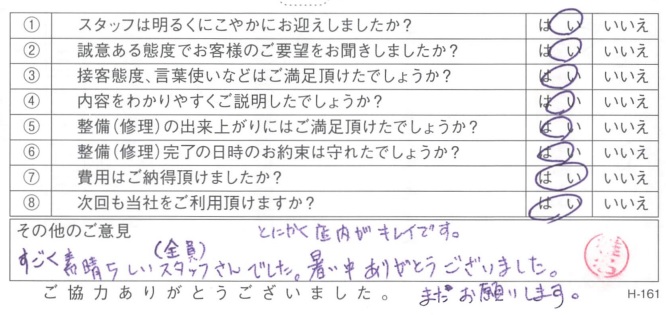 ① スタッフは明るくにこやかにお迎えしましたか? はい いいえ
② 誠意ある態度でお客様のご要望をお聞きしましたか? はい いいえ
③ 接客態度、言葉使いなどはご満足頂けたでしょうか? はい いいえ
④ 内容をわかりやすくご説明したでしょうか? はい いいえ
⑤ 整備(修理)の出来上がりにはご満足頂けたでしょうか? はい いいえ
⑥ 整備(修理)完了の日時のお約束は守れたでしょうか? はい いいえ
⑦ 費用はご納得頂けましたか? はい いいえ
⑧ 次回も当社をご利用頂けますか? はい いいえ
その他のご意見 とにかく店内がキレイです。
(全員)
すごく素晴らしいスタッフさんでした。暑い中ありがとうございました。
ご協力ありがとうございました。 またお願いします。 H-161